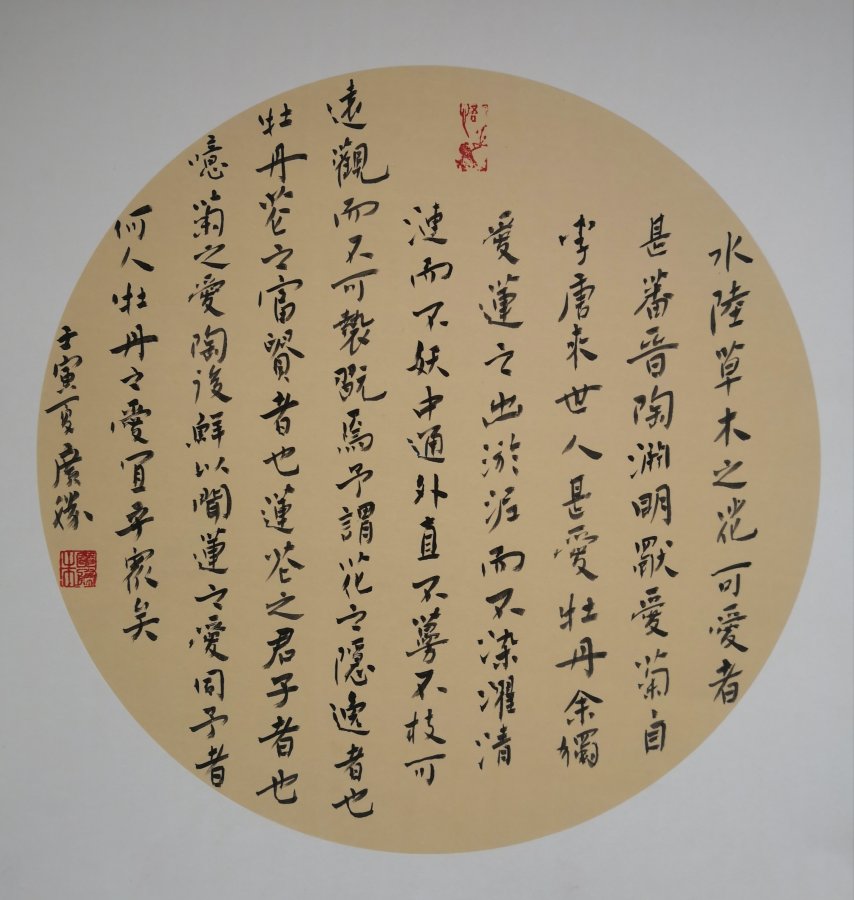 水陸草木之花可愛者
甚蕃晉陶淵明獨愛菊自
李唐來世人甚愛牡丹余獨
愛蓮之出淤泥而不染濯清
漣而不妖中通外直不蔓不枝可
遠觀而不可褻翫焉予謂花之隱逸者也
牡丹花之富貴者也蓮花之君子者也
噫菊之愛陶後鮮以聞蓮之愛同予者
何人牡丹之愛宜乎眾矣
壬寅夏廣